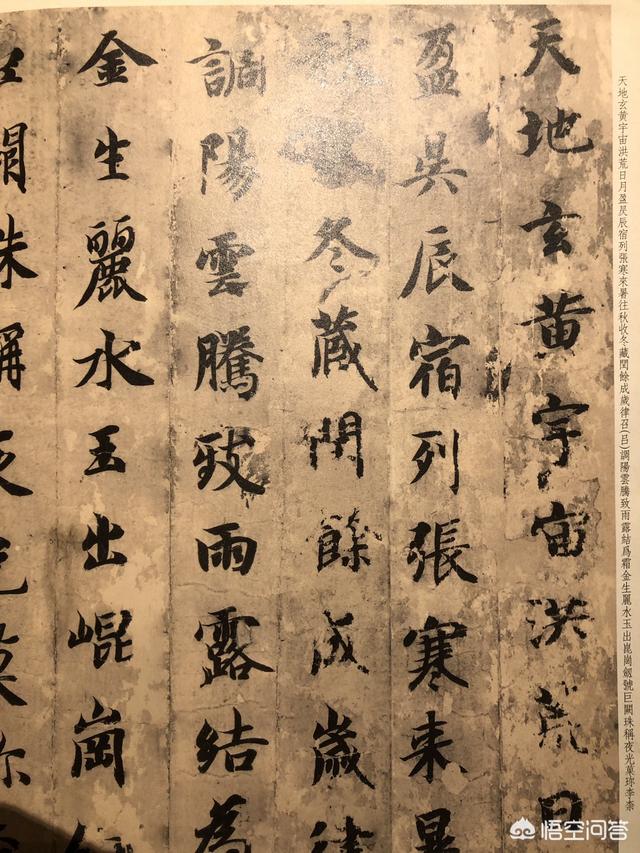 天地玄黃宇宙洪荒日月盈昃辰宿列張寒來暑往秋收冬藏閏餘成歲律召(呂)調陽雲騰致雨露結爲霜金生麗水玉出崑崗劒號巨闕珠稱夜光菓珍李柰
天地玄黄宇宙洪荒日
盈昃辰宿列張寒来暑
收冬藏閏餘成歲律
調陽雲騰致雨露結為
金生麗水玉出崐崗
巨闕珠稱夜光菓珎
悟空问答